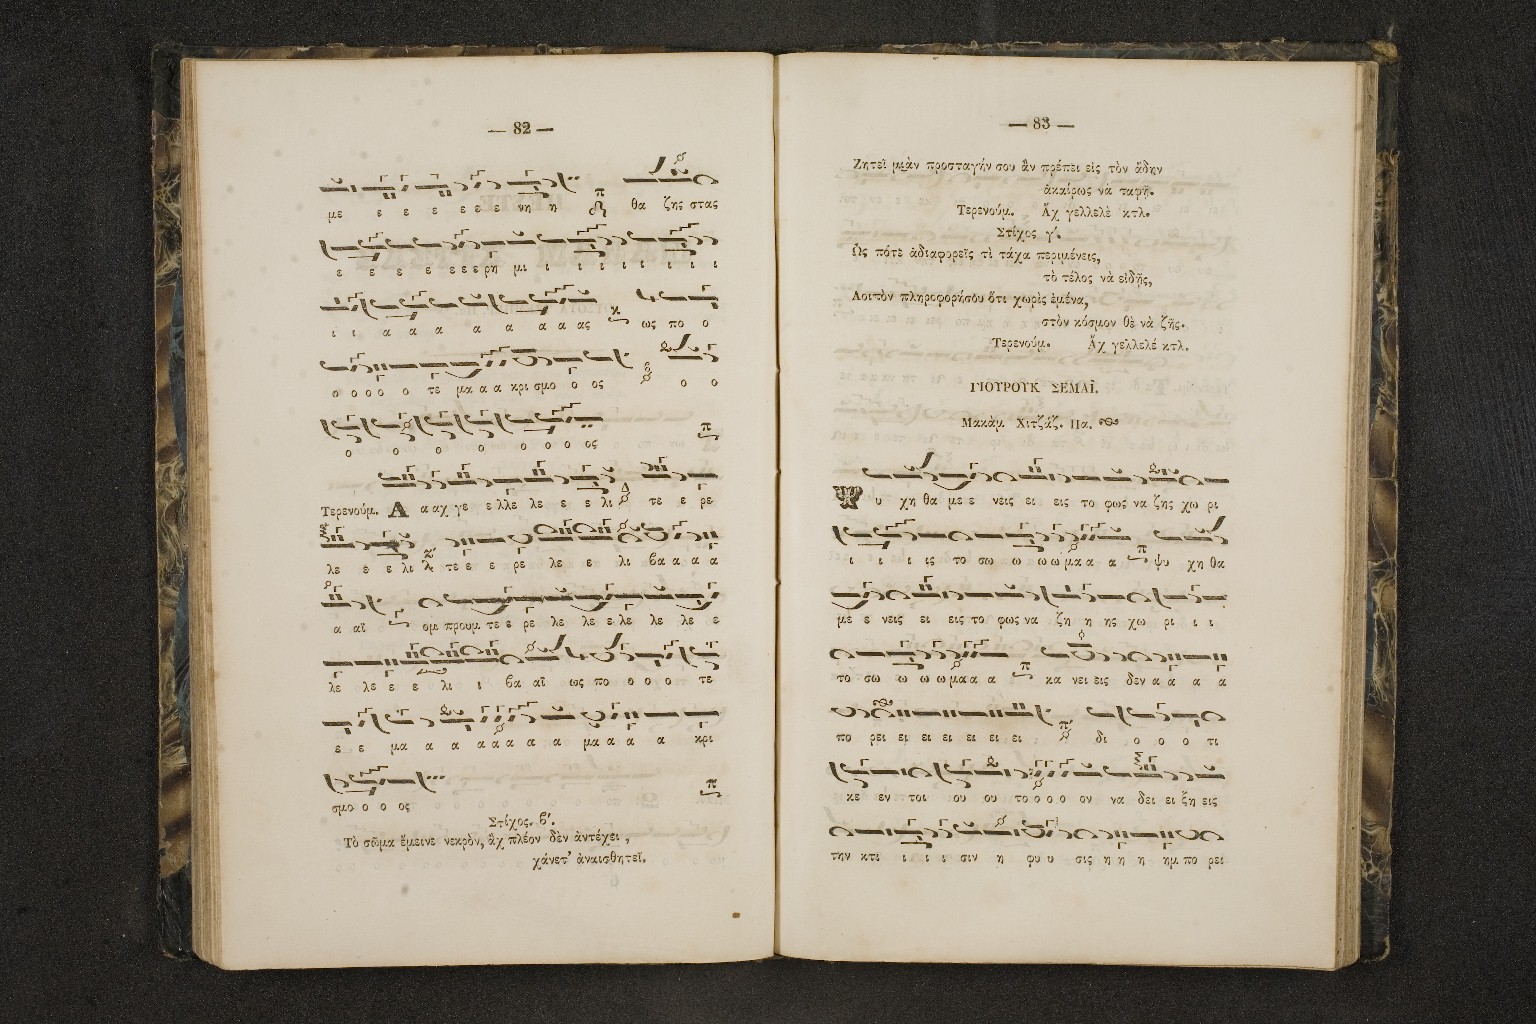 — 82 —
με ε ε ε ε ε ε νη η θα ζης στας
ε ε ε ε ε ε ε ε ρη μι ι ι ι ι ι ι ι ι
ι ι α α α α α α α ας ως πο ο
ο ο ο ο ο τε μα α α κρι σμο ο ος ο ο
ο ο ο ο ο ο ο ος
Τερενούμ. Α α αχ γε ε λλε λε ε ε λι τε ε ρε
λε ε ε λι τε ε ε ρε λε ε λι βα α α α
α αϊ ομ προυμ τε ε ρε λε λε ε λε λε λε ε
λε λε ε ε λι ι βα αϊ ως πο ο ο ο τε
ε ε μα α α α α α α α μα α α α κρι
σμο ο ο ος
Στίχος. β'.
Τὸ σῶμα ἔμεινε νεκρὸν, ἂχ πλέον δὲν ἀντέχει,
χάνετ' ἀναισθητεῖ.
— 83 —
Ζητεῖ μιὰν προσταγήν σου ἂν πρέπει εἰς τὸν ἅδην
ἀκαίρως νὰ ταφῇ.
Τερενούμ. Ἂχ γελλελὲ κτλ.
Στίχος γ'.
Ὡς πότε ἀδιαφορεῖς τὶ τάχα περιμένεις,
τὸ τέλος νὰ εἰδῇς,
Λοιπὸν πληροφορήσου ὅτι χωρὶς ἐμένα,
στὸν κόσμον θὲ νὰ ζῇς.
Τερενούμ. Ἂχ γελλελέ κτλ.
ΓΙΟΥΡΟΥΚ ΣΕΜΑΪ.
Μακὰμ. Χιτζάζ. Πα.
Ψ υ χη θα με ε νεις ει εις το φως να ζης χω ρι
ι ι ι ις το σω ω ω ω μα α α ψυ χη θα
με ε νεις ει εις το φως να ζη η ης χω ρι ι ι
το σω ω ω ω μα α α κα νει εις δεν α α α α
πο ρει ει ει ει ει ει ει δι ο ο ο τι
κε εν τοι ου ου το ο ο ο ον να δει ει ξη εις
την κτι ι ι ι σιν η φυ υ σις η η η ημ πο ρει